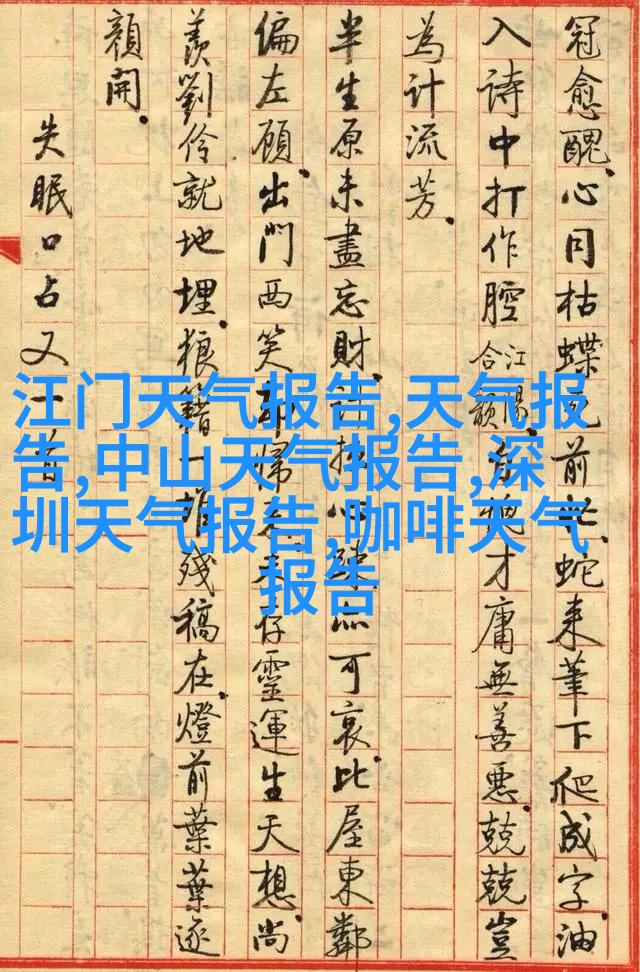 冠愈醜.心同枯蝶死前忙.蛇来筆下爬成字.油
入詩中打作腔.江陽合韻自愧才庸無善惡.兢兢豈
為計流芳.
半生原未盡忘財.計拙心疎亦可哀.比屋東鄰
偏左顧.出門西笑却歸来.未存靈運生天想.尚
羨劉伶就地埋.狼籍一堆殘稿在.燈前葉葉逐
顏開.
失眠口占又一首
江门天气报告,天气报
告,中山天气报告,深
圳天气报告,咖啡天气
报告